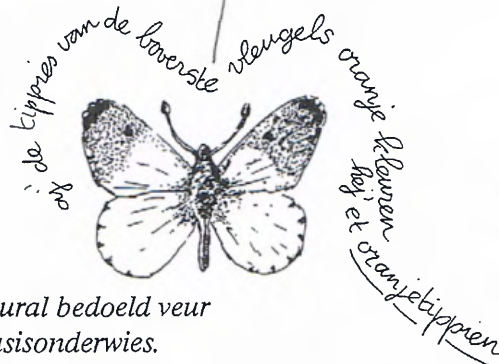 as' de tippies van de boverste vleugels oranje kleuren
hej' et oranjetippien
ural bedoeld veur
asisonderwies.